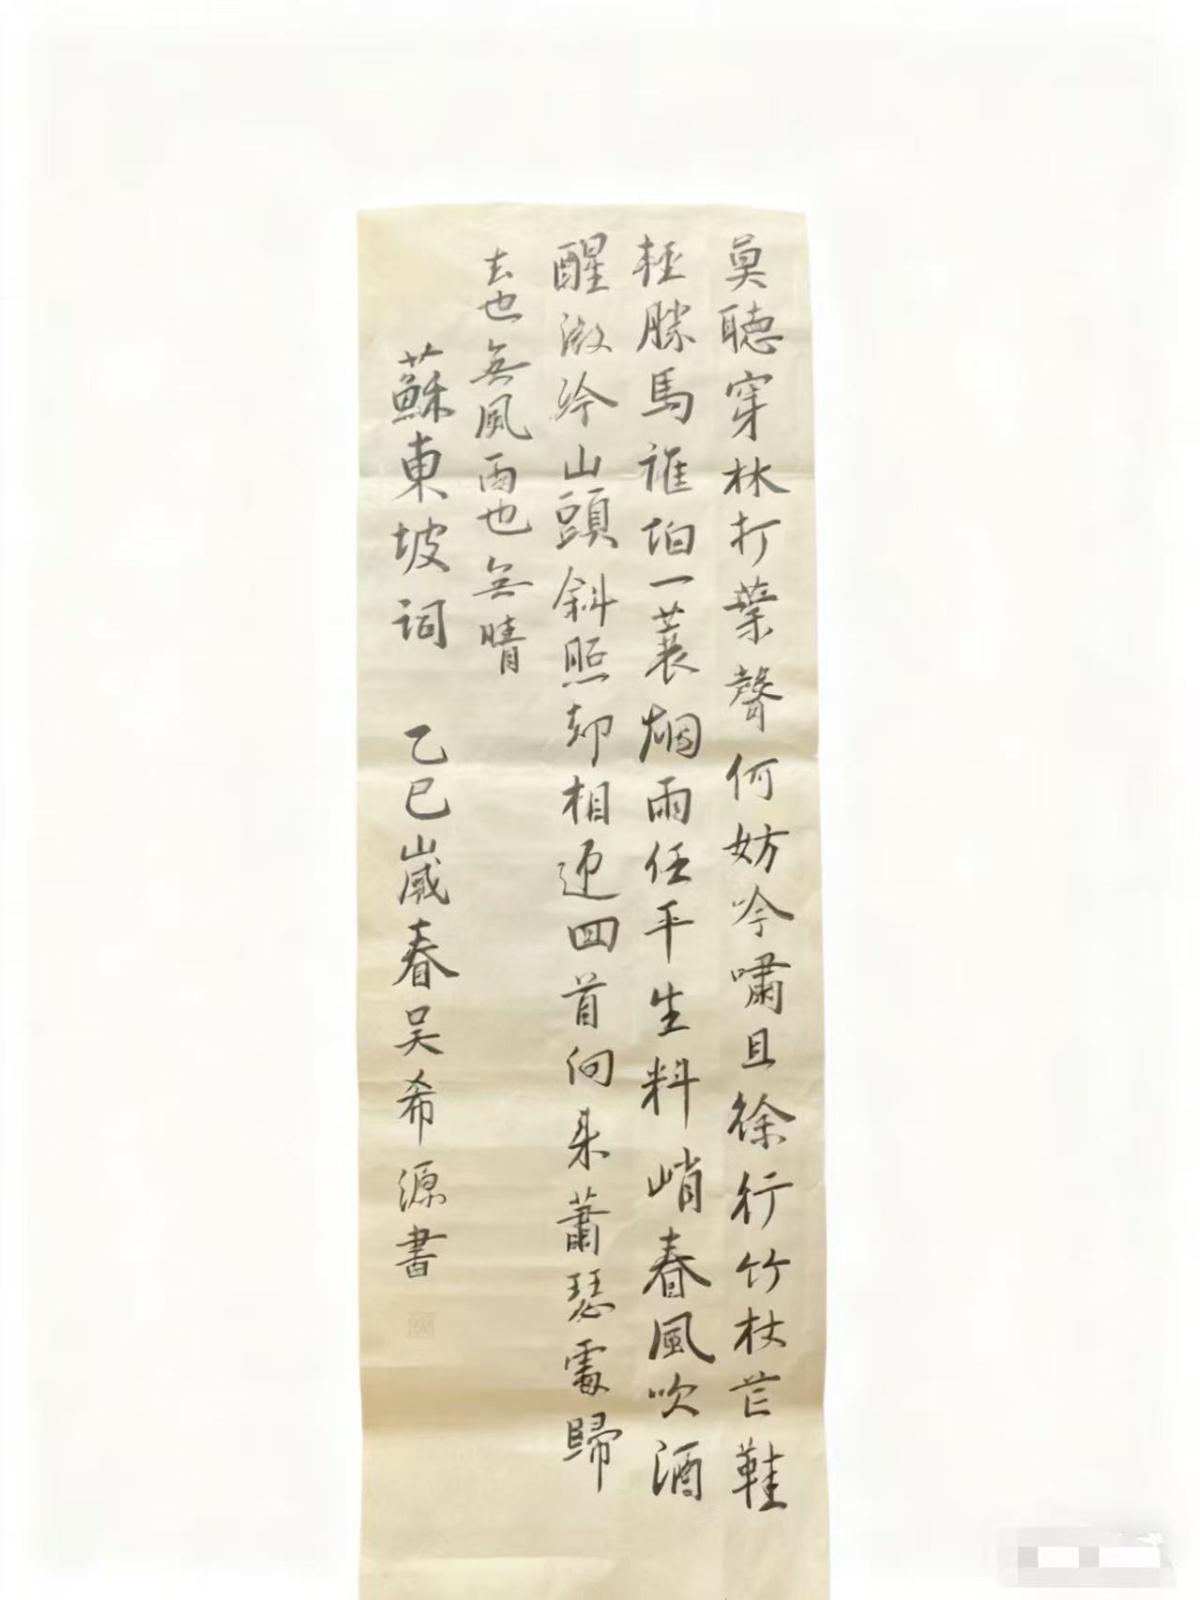 莫聽穿林打葉聲何妨吟嘯且徐行竹杖芒鞋
輕勝馬誰怕一蓑烟雨任平生料峭春風吹酒
醒微冷山頭斜照却相迎回首向來蕭瑟處歸
去也無風雨也無晴
蘇東坡詞 乙巳歲春吳希源書